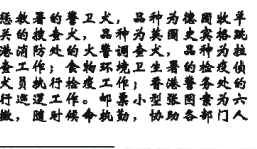 惩教署的警卫犬，品种为德国牧羊
关的搜查犬，品种为英国史宾格跳
港消防处的火警调查犬，品种为拉
查工作；食物环境卫生署的检疫侦
犬员执行检疫工作；香港警务处的
行巡逻工作。邮票小型张图案为六
撤，随时候命执勤，协助各部门人